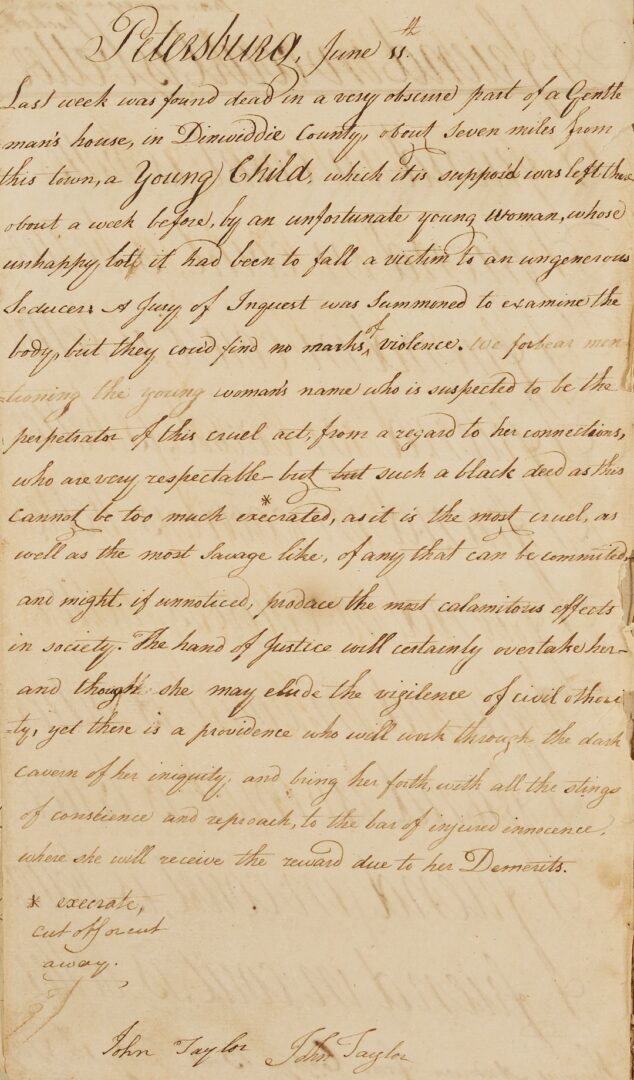 Petersburg, June 11th.
Last week was found dead in a very obscure part of a Gentle
man's house, in Dinwiddie County, about seven miles from
this town, a Young Child, which it is suppos'd was left there
about a week before, by an unfortunate young woman, whose
unhappy lot it had been to fall a victim to an ungenerous
Seducer. A Jury of Inquest was Summoned to examine the
body, but they cou'd find no marks of violence. We forbear men
=tioning the young woman's name who is suspected to be the
perpetrator of this cruel act, from a regard to her connections,
who are very respectable - but but such a black deed as this
cannot be too much *execrated, as it is the most cruel, as
well as the most Savage like, of any that can be commited,
and might, if unnoticed, produce the most calamitous effects
in society. The hand of Justice will certainly overtake her -
and though she may elude the vigilence of civil othori
=ty, yet there is a providence who will work through the dark
cavern of her iniquity, and bring her forth, with all the stings
of conscience and reproach, to the bar of injured innocence,
where she will receive the reward due to her Demerits.
* execrate,
cut off or cut
away.
John Taylor John Taylor